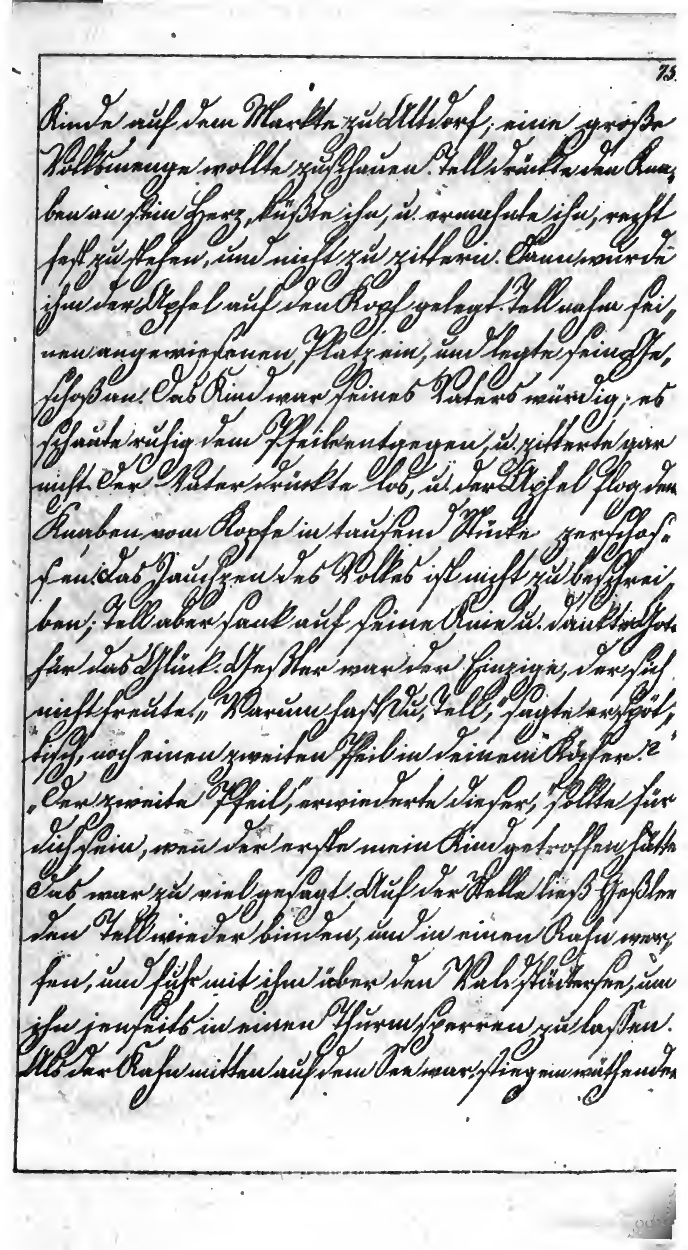 73.
Kinde auf dem Markte zu Altdorf; eine große
Volksmenge wollte zuschauen. Tell drückte den Kna„
ben an sein Herz, küßte ihn, u. ermahnte ihn, recht
fest zu stehen, und nicht zu zittern. Dann wurde
ihm der Apfel auf den Kopf gelegt. Tell nahm sei„
nen angewiesenen Platz ein, und legte sein Ge„
schoß an. Das Kind war seines Vaters würdig; es
schaute ruhig dem Pfeile entgegen, u. zitterte gar
nicht. Der Vater drückte los, u. der Apfel flog dem
Knaben vom Kopfe in tausend Stücke zerschos„
sen. Das Jauchzen des Volkes ist nicht zu beschrei„
ben; Tell aber sank auf seine Knie u. dankte Gott
für das Glück. Geßler war der Einzige, der sich
nicht freute. „Warum hast Du, Tell,“ sagte er spöt„
tisch, noch einen zweiten Pfeil in deinem Köcher?“
„Der zweite Pfeil,“ erwiederte dieser, „sollte für
dich sein, weñ der erste mein Kind getroffen hätte
Das war zu viel gesagt. Auf der Stelle ließ Geßler
den Tell wieder binden, und in einen Kahn wer„
fen, und fuhr mit ihm über den Waldstädtersee, um
ihn jenseits in einen Thurm sperren zu laßen.
Als der Kahn mitten auf dem See war, stieg ein wüthender